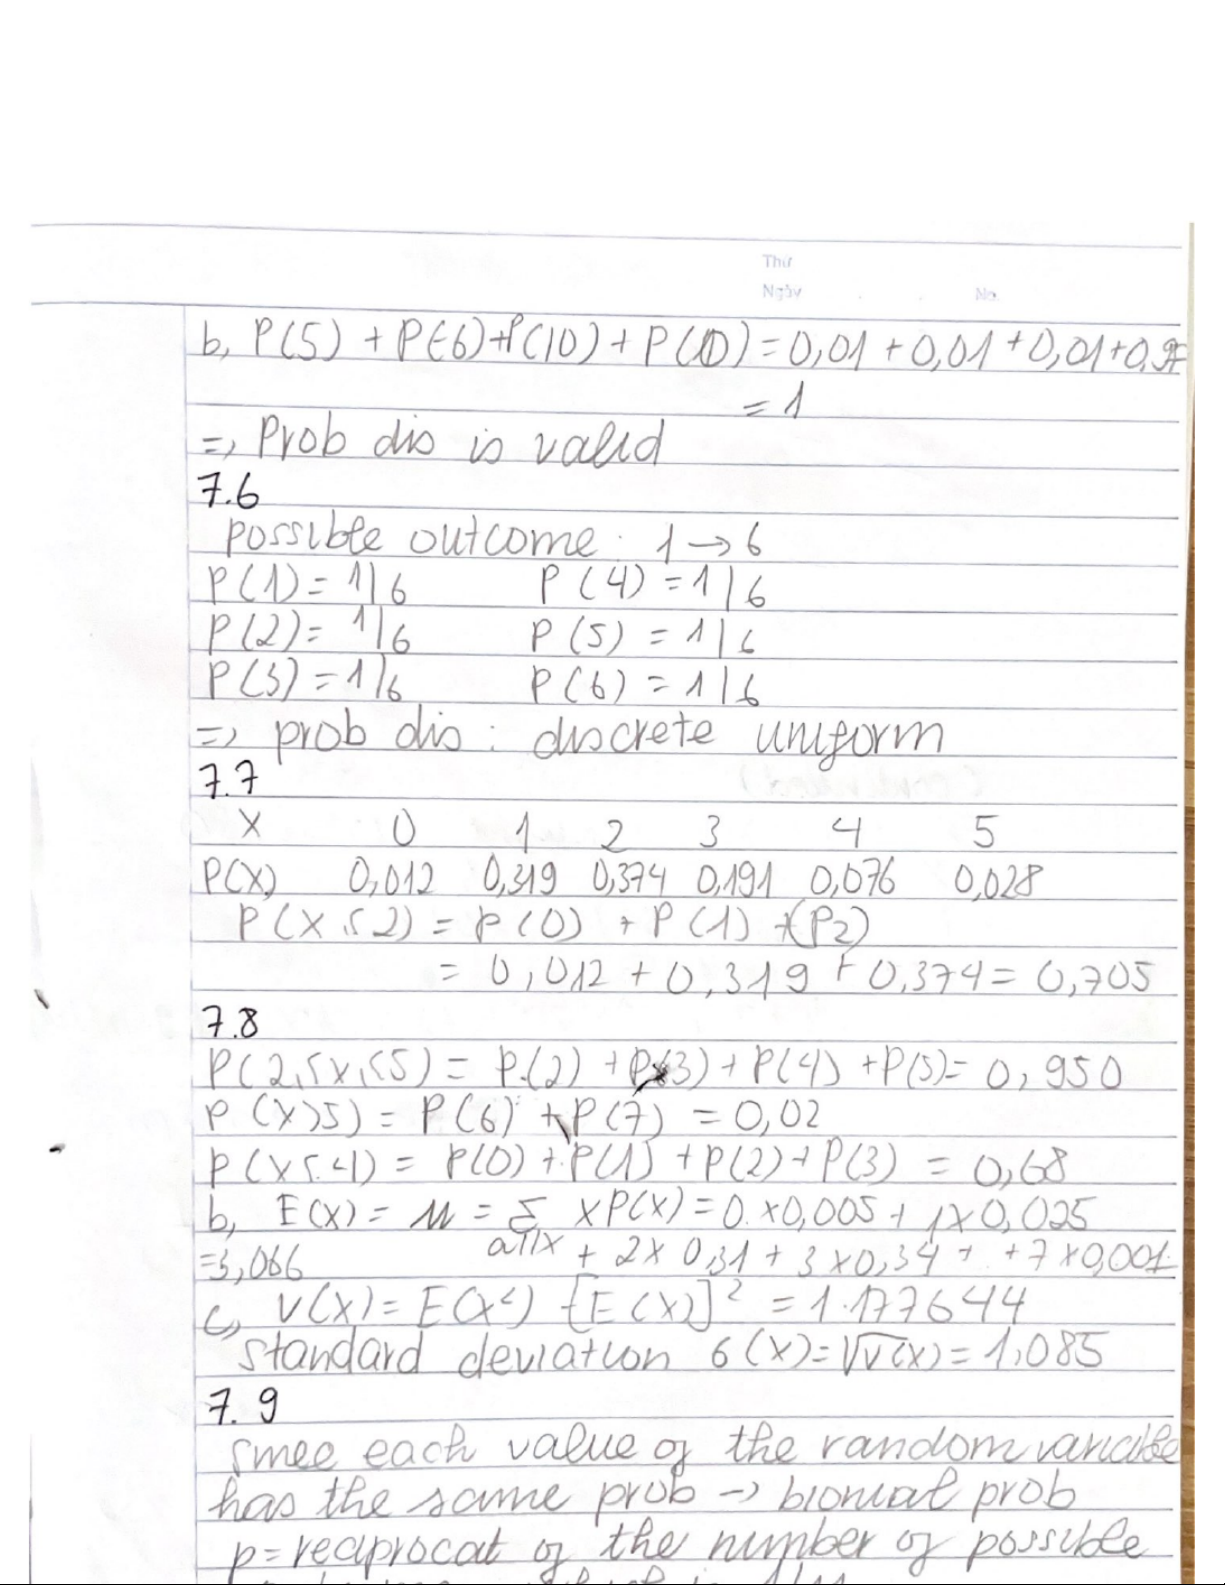 Thứ
Ngày No.
b, P(5) + P(-6) + P(10) + P(0) = 0,01 + 0,01 + 0,01 + 0,97
= 1
=> Prob dis is valid
7.6
possible outcome : 1 → 6
P(1) = 1/6 P(4) = 1/6
P(2) = 1/6 P(5) = 1/6
P(3) = 1/6 P(6) = 1/6
=> prob dis : discrete uniform
7.7
X 0 1 2 3 4 5
P(X) 0,012 0,319 0,374 0,191 0,076 0,028
P(X ≤ 2) = P(0) + P(1) + (P2)
= 0,012 + 0,319 + 0,374 = 0,705
7.8
P(2 ≤ X ≤ 5) = P(2) + P(3) + P(4) + P(5) = 0,950
P(X > 5) = P(6) + P(7) = 0,02
P(X ≤ 4) = P(0) + P(1) + P(2) + P(3) = 0,68
b, E(X) = M = Σ XP(X) = 0 × 0,005 + 1 × 0,025
all x + 2 × 0,31 + 3 × 0,34 + + 7 × 0,001
= 3,066
c, V(X) = E(X²) - [E(X)]² = 1.177644
standard deviation 6(X) = √V(X) = 1,085
7.9
Since each value of the random variable
has the same prob → biomial prob
p = reciprocal of the number of possible